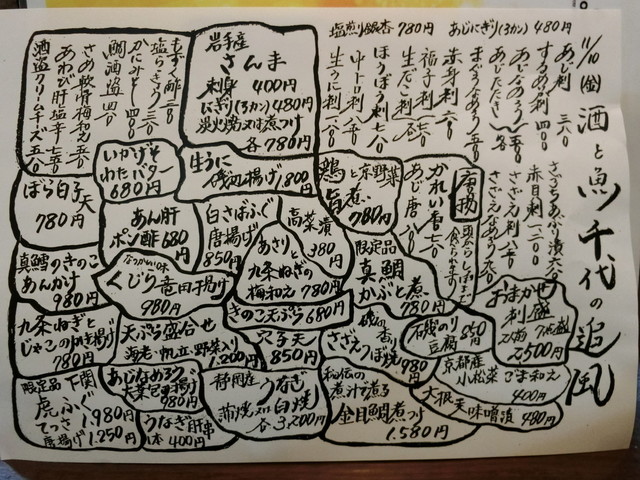 11/10 (金) 酒と魚 千代の追風
塩煎り銀杏 780円
あじにぎり(3カン) 480円
あじ刺 三八〇
するめ刺 四八〇
あじなめろう 五八〇
あじたたき
まぐろなめろう 五八〇
赤身刺 六八〇
福子刺
生だこ刺
ほうぼう刺 七八〇
中トロ刺
生うに刺
さざえ刺
さざえなめろう
赤目刺 一二〇〇
おまかせ刺盛
2人前 7点盛
2,500円
唐揚
頭からしっぽまで食べられます
かれい唐 七八〇
あじ唐
岩手産
さんま
刺身 400円
にぎり(3カン) 480円
炭火焼又は煮つけ
各780円
もずく酢 三八〇
塩らっきょう 三三〇
かにみそ 四八〇
鯛酒盗
さめ軟骨梅和え
あわび肝塩辛
酒盗クリームチーズ
いかげそ
わたバター
680円
生うに
磯辺揚げ 1,800円
鶏と京野菜
旨煮
780円
ぼら白子天
780円
あん肝
ポン酢 680円
白さばふぐ
唐揚げ
850円
高菜漬
380円
あさりと
九条ねぎの
梅和え 780円
限定品
真鯛
かぶと煮
780円
真鱈のきのこ
あんかけ
980円
なつかしい味
くじら竜田揚げ
980円
きのこ天ぷら 680円
九条ねぎと
じゃこのかき揚げ
780円
天ぷら盛合せ
海老・帆立・野菜入り
1,200円
穴子天
850円
磯の香り
さざえつぼ焼
980円
石磯のり
豆腐
550円
京都産
小松菜ごま和え
400円
大根麦味噌漬 480円
限定品 下関
虎ふぐ
てっさ 1,980円
唐揚げ 1,250円
あじなめろう
大葉包み揚げ
980円
うなぎ肝串
1本 400円
静岡産
うなぎ
蒲焼又は白焼
各3,200円
秘伝の
煮汁で煮る
金目鯛煮つけ
1,580円